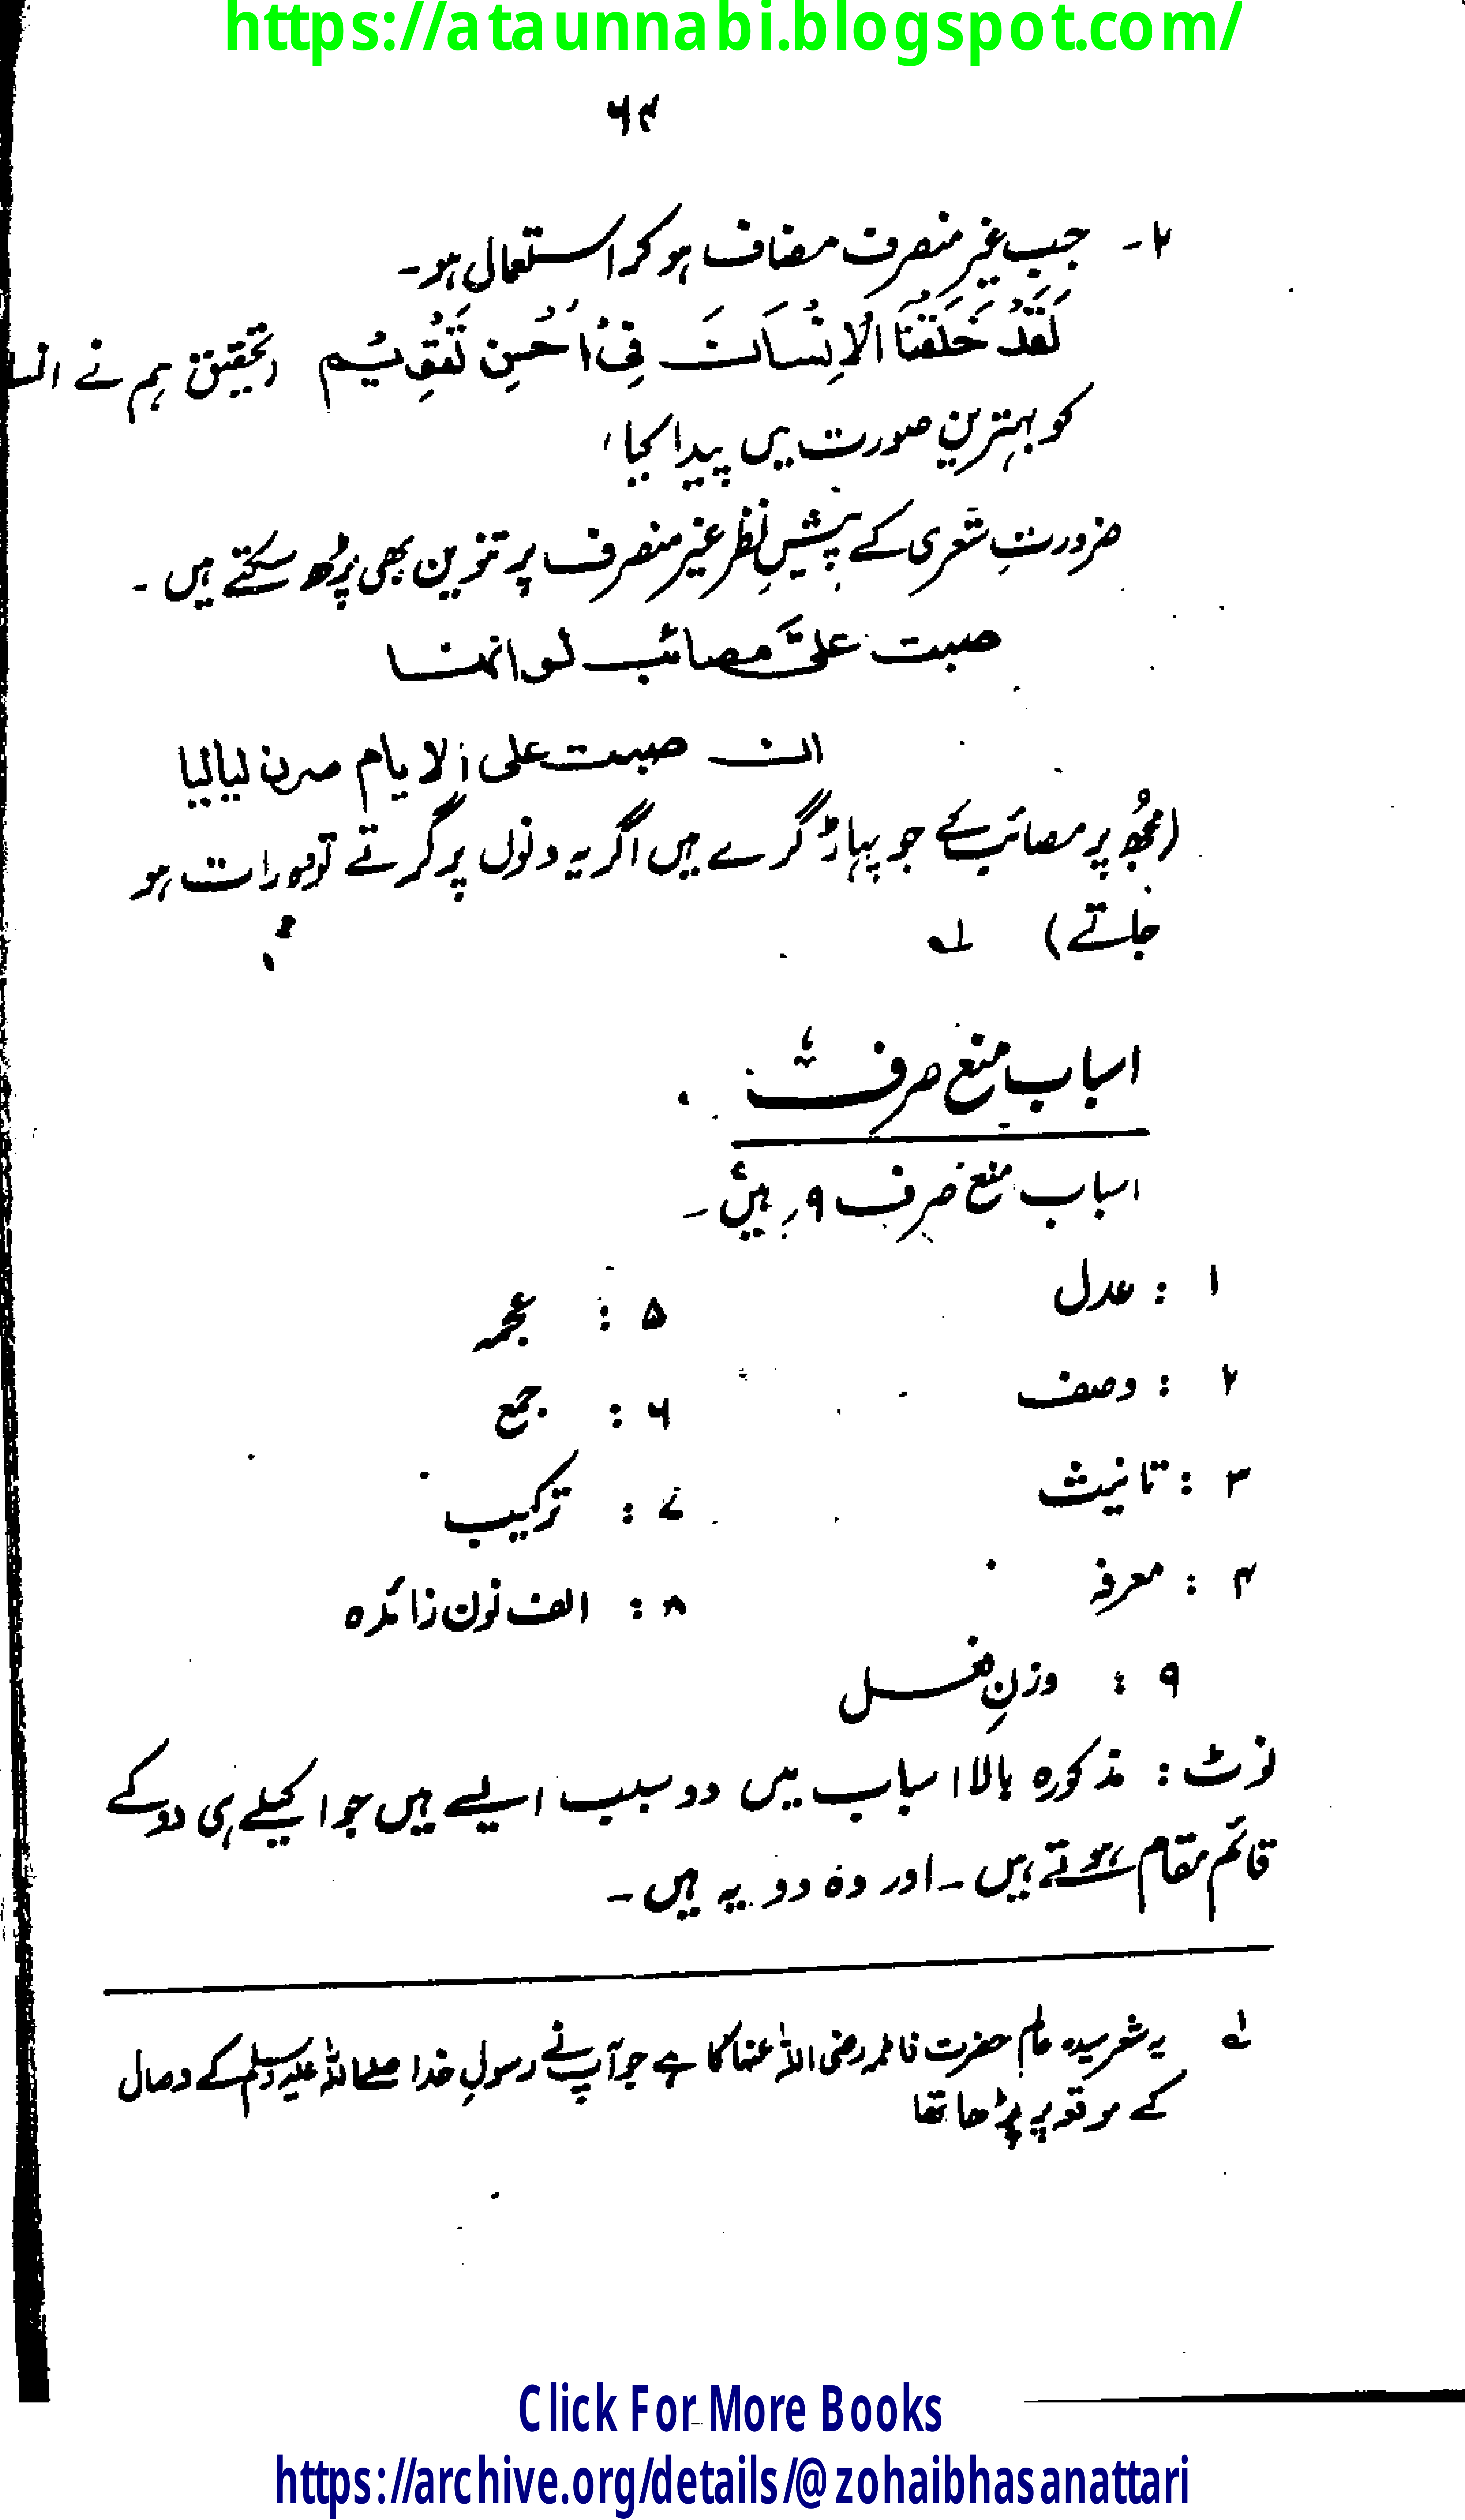 https://ataunnabi.blogspot.com/
۶۴
۲۔ جب غیر منصرف مضاف ہو کر استعمال ہو۔
لَقَدْ خَلَقْنَا الْاِنْسَانَ فِیْ اَحْسِن تَقْوِیْم (تحقیق ہم نے انسا
کو بہترین صورت میں پیدا کیا'
ضرورتِ شعری کے پیشِ نظر غیر منصرف پر تنوین بھی پڑھ سکتے ہیں۔
صبت علیَّ مصائب لو انھا
ان صبت علی الایام صرن لیالیا
(مجھ پر مصائب کے جو پہاڑ گرے ہیں اگر یہ دنوں پر گرتے تو وہ رات ہو
جاتے) لہ
اسباب منع صرف
اسباب منع صرف ۹ ہیں۔
۱ : عدل ۵ : عجمہ
۲ : وصف ۶ : جمع
۳ : تانیث ۷ : ترکیب
۴ : معرفہ ۸ : الف نون زائدہ
۹ : وزنِ فعل
نوٹ : مذکورہ بالا اسباب میں دو سبب ایسے ہیں جو اکیلے ہی دو کے
قائم مقام ہوتے ہیں۔ اور وہ دو یہ ہیں۔
لہ یہ شعر سیدہ عالم حضرت فاطمہ رضی اللہ عنہا کا ہے جو آپ نے رسولِ خدا صلی اللہ علیہ وسلم کے وصال
کے موقعہ پر پڑھا تھا
Click For More Books
https://archive.org/details/@zohaibhasanattari